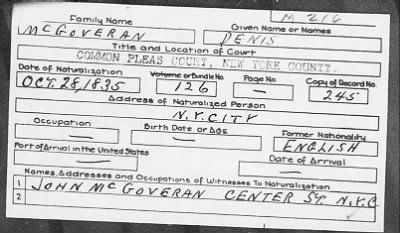 M 216
Family Name Given Name or Names
McGOVERAN DENIS
Title and Location of Court
COMMON PLEAS COURT, NEW YORK COUNTY.
Date of Naturalization Volume or Bundle No. Page No. Copy of Record No.
OCT. 28, 1835 126 — 245
Address of Naturalized Person
N.Y. CITY
Occupation Birth Date or Age Former Nationality
— — ENGLISH
Port of Arrival in the United States Date of Arrival
— —
Names, Addresses and Occupations of Witnesses To Naturalization
1 JOHN McGOVERAN CENTER ST. N.Y.C
2